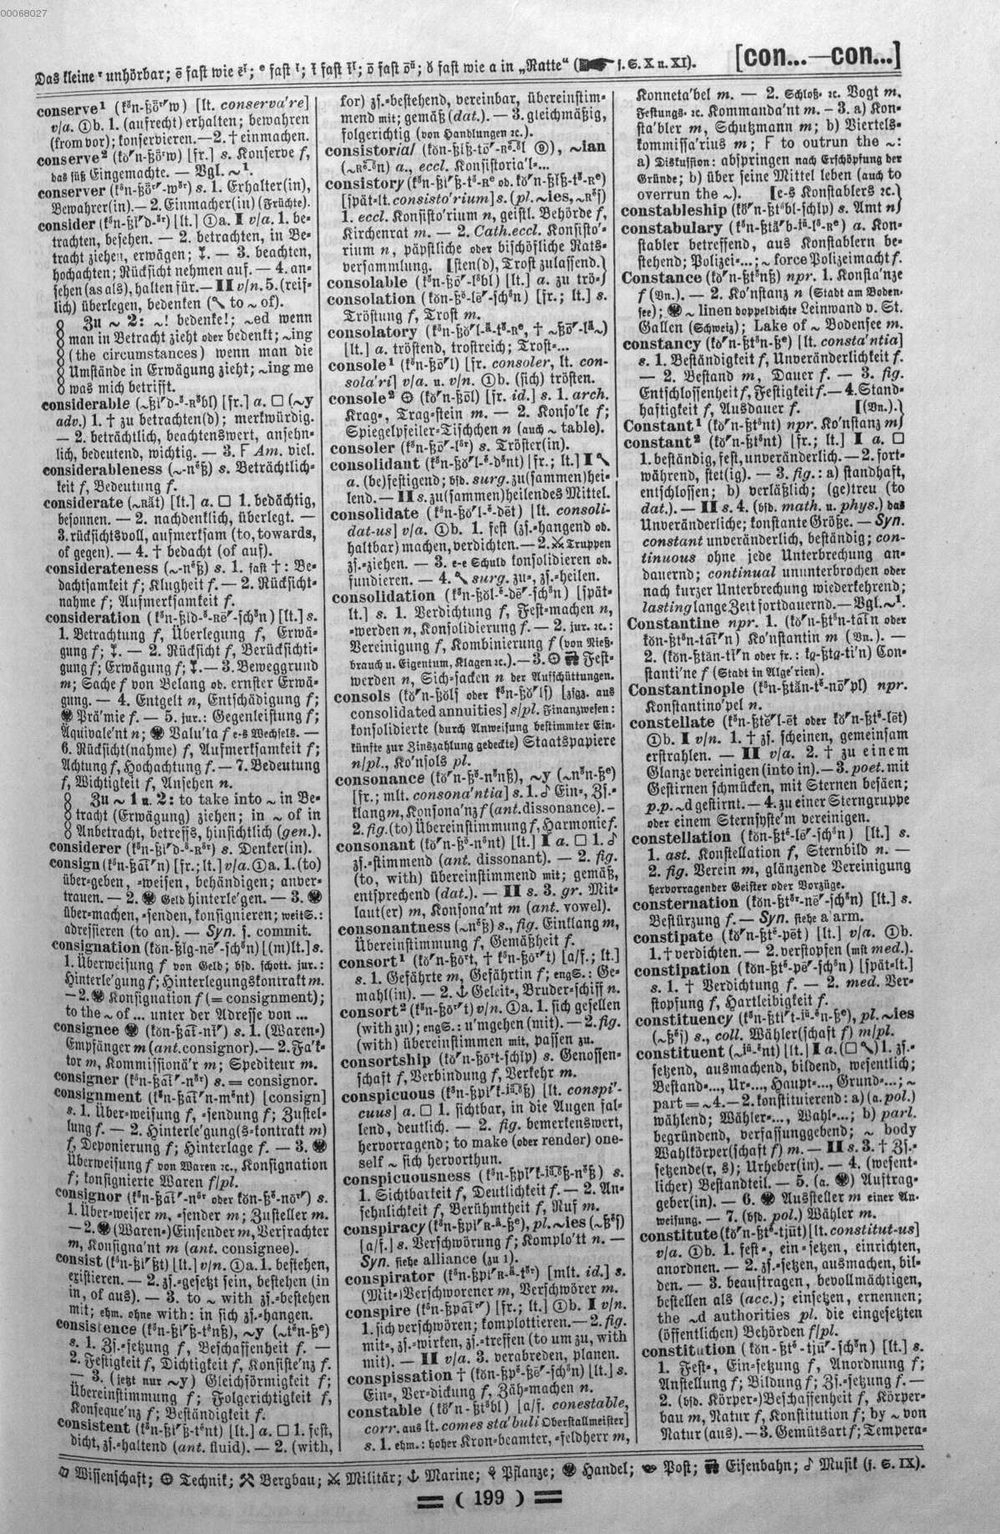 00068027
Das kleine ʳ unhörbar; ē fast wie ēⁱ; ᵉ fast ⁱ; ī fast īⁱ; ō fast ōᵘ; ö fast wie a in „Ratte“ (☛ s. S. X u. XI).
[con...—con...]
conserve¹ [lt. conserva're]
v/a. ①b. 1. (aufrecht) erhalten; bewahren
(from vor); konservieren. — 2. † einmachen.
conserve² [fr.] s. Konserve f,
das süß Eingemachte. — Vgl. ~¹.
conserver s. 1. Erhalter(in),
Bewahrer(in). — 2. Einmacher(in) (Früchte).
consider [lt.] ①a. I v/a. 1. be-
trachten, besehen. — 2. betrachten, in Be-
tracht ziehen, erwägen; — 3. beachten,
hochachten; Rücksicht nehmen auf. — 4. an-
sehen (as als), halten für. — II v/n. 5. (reif-
lich) überlegen, bedenken (to ~ of).
Zu ~ 2: ~! bedenke!; ~ed wenn
man in Betracht zieht oder bedenkt; ~ing
(the circumstances) wenn man die
Umstände in Erwägung zieht; ~ing me
was mich betrifft.
considerable [fr.] a. □ (~y
adv.) 1. † zu betrachten(d); merkwürdig.
— 2. beträchtlich, beachtenswert, ansehn-
lich, bedeutend, wichtig. — 3. F Am. viel.
considerableness s. Beträchtlich-
keit f, Bedeutung f.
considerate [lt.] a. □ 1. bedächtig,
besonnen. — 2. nachdenklich, überlegt. —
3. rücksichtsvoll, aufmerksam (to, towards,
of gegen). — 4. † bedacht (of auf).
considerateness s. 1. fast †: Be-
dachtsamkeit f; Klugheit f. — 2. Rücksicht-
nahme f; Aufmerksamkeit f.
consideration [lt.] s.
1. Betrachtung f, Überlegung f, Erwä-
gung f; — 2. Rücksicht f, Berücksichti-
gung f; Erwägung f; — 3. Beweggrund
m; Sache f von Belang od. ernster Erwä-
gung. — 4. Entgelt n, Entschädigung f;
Prä'mie f. — 5. jur.: Gegenleistung f;
Äquivale'nt n; Valu'ta f e-s Wechsels. —
6. Rücksicht(nahme) f, Aufmerksamkeit f;
Achtung f, Hochachtung f. — 7. Bedeutung
f, Wichtigkeit f, Ansehen n.
Zu ~ 1 u. 2: to take into ~ in Be-
tracht (Erwägung) ziehen; in ~ of in
Anbetracht, betreffs, hinsichtlich (gen.).
considerer s. Denker(in).
consign [fr.; lt.] v/a. ①a. 1. (to)
über-geben, -weisen, behändigen; anver-
trauen. — 2. Geld hinterle'gen. — 3.
über-machen, -senden, konsignieren; weitS.:
adressieren (to an). — Syn. s. commit.
consignation [(m)lt.] s.
1. Überweisung f von Geld; bsd. schott. jur.:
Hinterle'gung f; Hinterlegungskontrakt m.
— 2. Konsignation f (= consignment);
to the ~ of ... unter der Adresse von ...
consignee s. 1. (Waren-)
Empfänger m (ant. consignor). — 2. Fa'k-
tor m, Kommissionä'r m; Spediteur m.
consigner s. = consignor.
consignment [consign]
s. 1. Über-weisung f, -sendung f; Zustel-
lung f. — 2. Hinterle'gung(s-kontrakt m)
f, Deponierung f; Hinterlage f. — 3.
Überweisung f von Waren ꝛc., Konsignation
f; konsignierte Waren f/pl.
consignor s.
1. Über-weiser m, -sender m; Zusteller m.
— 2. (Waren-)Einsender m, Verfrachter
m, Konsigna'nt m (ant. consignee).
consist [lt.] v/n. ①a. 1. bestehen,
existieren. — 2. zs.-gesetzt sein, bestehen (in
in, of aus). — 3. to ~ with zs.-bestehen
mit; ehm. ohne with: in sich zs.-hangen.
consistence, ~y
s. 1. Zs.-setzung f, Beschaffenheit f. —
2. Festigkeit f, Dichtigkeit f, Konsiste'nz f.
— 3. (jetzt nur ~y) Gleichförmigkeit f;
Übereinstimmung f; Folgerichtigkeit f,
Konseque'nz f; Beständigkeit f.
consistent [lt.] a. □ 1. fest,
dicht, zs.-haltend (ant. fluid). — 2. (with,
for) zs.-bestehend, vereinbar, übereinstim-
mend mit; gemäß (dat.). — 3. gleichmäßig,
folgerichtig (von Handlungen ꝛc.).
consistorial, ~ian
a., eccl. Konsistoria'l-...
consistory
[spät-lt. consisto'rium] s. (pl. ~ies)
1. eccl. Konsisto'rium n, geistl. Behörde f,
Kirchenrat m. — 2. Cath. eccl. Konsisto'-
rium n, päpstliche oder bischöfliche Rats-
versammlung. [sten(d), Trost zulassend.]
consolable [lt.] a. zu trö-
consolation [fr.; lt.] s.
Tröstung f, Trost m.
consolatory
[lt.] a. tröstend, trostreich; Trost-...
console¹ [fr. consoler, lt. con-
sola'ri] v/a. u. v/n. ①b. (sich) trösten.
console² [fr. id.] s. 1. arch.
Krag-, Trag-stein m. — 2. Konso'le f;
Spiegelpfeiler-Tischchen n (auch ~ table).
consoler s. Tröster(in).
consolidant [fr.; lt.] I
a. (be)festigend; bsd. surg. zu(sammen)hei-
lend. — II s. zu(sammen)heilendes Mittel.
consolidate [lt. consoli-
dat-us] v/a. ①b. 1. fest (zs.-hangend od.
haltbar) machen, verdichten. — 2. Truppen
zs.-ziehen. — 3. e-e Schuld konsolidieren od.
fundieren. — 4. surg. zu-, zs.-heilen.
consolidation [spät-
lt.] s. 1. Verdichtung f, Fest-machen n,
-werden n, Konsolidierung f. — 2. jur. ꝛc.:
Vereinigung f, Kombinierung f (von Nieß-
brauch u. Eigentum, Klagen ꝛc.). — 3. Fest-
werden n, Sich-sacken n der Aufschüttungen.
consols [zsgz. aus
consolidated annuities] s/pl. Finanzwesen:
konsolidierte (durch Anweisung bestimmter Ein-
künfte zur Zinszahlung gedeckte) Staatspapiere
n/pl., Ko'nsols pl.
consonance, ~y
[fr.; mlt. consona'ntia] s. 1. ♪ Ein-, Zs.-
klang m, Konsona'nz f (ant. dissonance). —
2. fig. (to) Übereinstimmung f, Harmonie f.
consonant [lt.] I a. □ 1. ♪
zs.-stimmend (ant. dissonant). — 2. fig.
(to, with) übereinstimmend mit; gemäß,
entsprechend (dat.). — II s. 3. gr. Mit-
laut(er) m, Konsona'nt m (ant. vowel).
consonantness s., fig. Einklang m,
Übereinstimmung f, Gemäßheit f.
consort¹ [a/f.; lt.]
s. 1. Gefährte m, Gefährtin f; engS.: Ge-
mahl(in). — 2. ⚓ Geleit-, Bruder-schiff n.
consort² v/n. ①a. 1. sich gesellen
(with zu); engS.: u'mgehen (mit). — 2. fig.
(with) übereinstimmen mit, passen zu.
consortship s. Genossen-
schaft f, Verbindung f, Verkehr m.
conspicuous [lt. conspi'-
cuus] a. □ 1. sichtbar, in die Augen fal-
lend, deutlich. — 2. fig. bemerkenswert,
hervorragend; to make (oder render) one-
self ~ sich hervorthun.
conspicuousness s.
1. Sichtbarkeit f, Deutlichkeit f. — 2. An-
sehnlichkeit f, Berühmtheit f, Ruf m.
conspiracy, pl. ~ies
[a/f.] s. Verschwörung f; Komplo'tt n. —
Syn. siehe alliance (zu 1).
conspirator [mlt. id.] s.
(Mit-)Verschworener m, Verschwörer m.
conspire [fr.; lt.] ①b. I v/n.
1. sich verschwören; komplottieren. — 2. fig.
mit-, zs.-wirken, zs.-treffen (to um zu, with
mit). — II v/a. 3. verabreden, planen.
conspissation † [lt.] s.
Ein-, Ver-dickung f, Zäh-machen n.
constable [a/f. conestable,
corr. aus lt. comes sta'buli Oberstallmeister]
s. 1. ehm.: hoher Kron-beamter, -feldherr m,
Konneta'bel m. — 2. Schloß- ꝛc. Vogt m,
Festungs- ꝛc. Kommanda'nt m. — 3. a) Kon-
sta'bler m, Schutzmann m; b) Viertels-
kommissa'rius m; F to outrun the ~:
a) Diskussion: abspringen nach Erschöpfung der
Gründe; b) über seine Mittel leben (auch to
overrun the ~). [e-s Konstablers ꝛc.]
constableship s. Amt n
constabulary a. Kon-
stabler betreffend, aus Konstablern be-
stehend; Polizei-...; ~ force Polizeimacht f.
Constance npr. 1. Konsta'nze
f (Vn.). — 2. Ko'nstanz n (Stadt am Boden-
see); ~ linen doppeldichte Leinwand v. St.
Gallen (Schweiz); Lake of ~ Bodensee m.
constancy [lt. consta'ntia]
s. 1. Beständigkeit f, Unveränderlichkeit f.
— 2. Bestand m, Dauer f. — 3. fig.
Entschlossenheit f, Festigkeit f. — 4. Stand-
haftigkeit f, Ausdauer f. [(Vn.).]
Constant¹ npr. Ko'nstanz m
constant² [fr.; lt.] I a. □
1. beständig, fest, unveränderlich. — 2. fort-
während, stet(ig). — 3. fig.: a) standhaft,
entschlossen; b) verläßlich; (ge)treu (to
dat.). — II s. 4. (bsd. math. u. phys.) das
Unveränderliche; konstante Größe. — Syn.
constant unveränderlich, beständig; con-
tinuous ohne jede Unterbrechung an-
dauernd; continual ununterbrochen oder
nach kurzer Unterbrechung wiederkehrend;
lasting lange Zeit fortdauernd. — Vgl. ~¹.
Constantine npr. 1.
Ko'nstantin m (Vn.). —
2. Con-
stanti'ne f (Stadt in Alge'rien).
Constantinople npr.
Konstantino'pel n.
constellate
①b. I v/n. 1. † zs. scheinen, gemeinsam
erstrahlen. — II v/a. 2. † zu einem
Glanze vereinigen (into in). — 3. poet. mit
Gestirnen schmücken, mit Sternen besäen;
p.p. ~d gestirnt. — 4. zu einer Sterngruppe
oder einem Sternsyste'm vereinigen.
constellation [lt.] s.
1. ast. Konstellation f, Sternbild n. —
2. fig. Verein m, glänzende Vereinigung
hervorragender Geister oder Vorzüge.
consternation [lt.] s.
Bestürzung f. — Syn. siehe a'arm.
constipate [lt.] v/a. ①b.
1. † verdichten. — 2. verstopfen (mit med.).
constipation [spät-lt.]
s. 1. † Verdichtung f. — 2. med. Ver-
stopfung f, Hartleibigkeit f.
constituency, pl. ~ies
s., coll. Wähler(schaft f) m/pl.
constituent [lt.] I a. (□) 1. zs.-
setzend, ausmachend, bildend, wesentlich;
Bestand-..., Ur-..., Haupt-..., Grund-...; ~
part = ~ 4. — 2. konstituierend: a) (a. pol.)
wählend; Wähler-..., Wahl-...; b) parl.
begründend, verfassunggebend; ~ body
Wahlkörper(schaft f) m. — II s. 3. † Zs.-
setzende(r, s); Urheber(in). — 4. (wesent-
licher) Bestandteil. — 5. (a.) Auftrag-
geber(in). — 6. Aussteller m einer An-
weisung. — 7. (bsd. pol.) Wähler m.
constitute [lt. constitut-us]
v/a. ①b. 1. fest-, ein-setzen, einrichten,
anordnen. — 2. zs.-setzen, ausmachen, bil-
den. — 3. beauftragen, bevollmächtigen,
bestellen als (acc.); einsetzen, ernennen;
the ~d authorities pl. die eingesetzten
(öffentlichen) Behörden f/pl.
constitution [lt.] s.
1. Fest-, Ein-setzung f, Anordnung f;
Anstellung f; Bildung f; Zs.-setzung f. —
2. (bsd. Körper-)Beschaffenheit f, Körper-
bau m, Natur f, Konstitution f; by ~ von
Natur (aus). — 3. Gemütsart f; Tempera-
Wissenschaft; ⚙ Technik; ⚒ Bergbau; ⚔ Militär; ⚓ Marine; Pflanze; Handel; Post; Eisenbahn; ♪ Musik (s. S. IX).
( 199 )